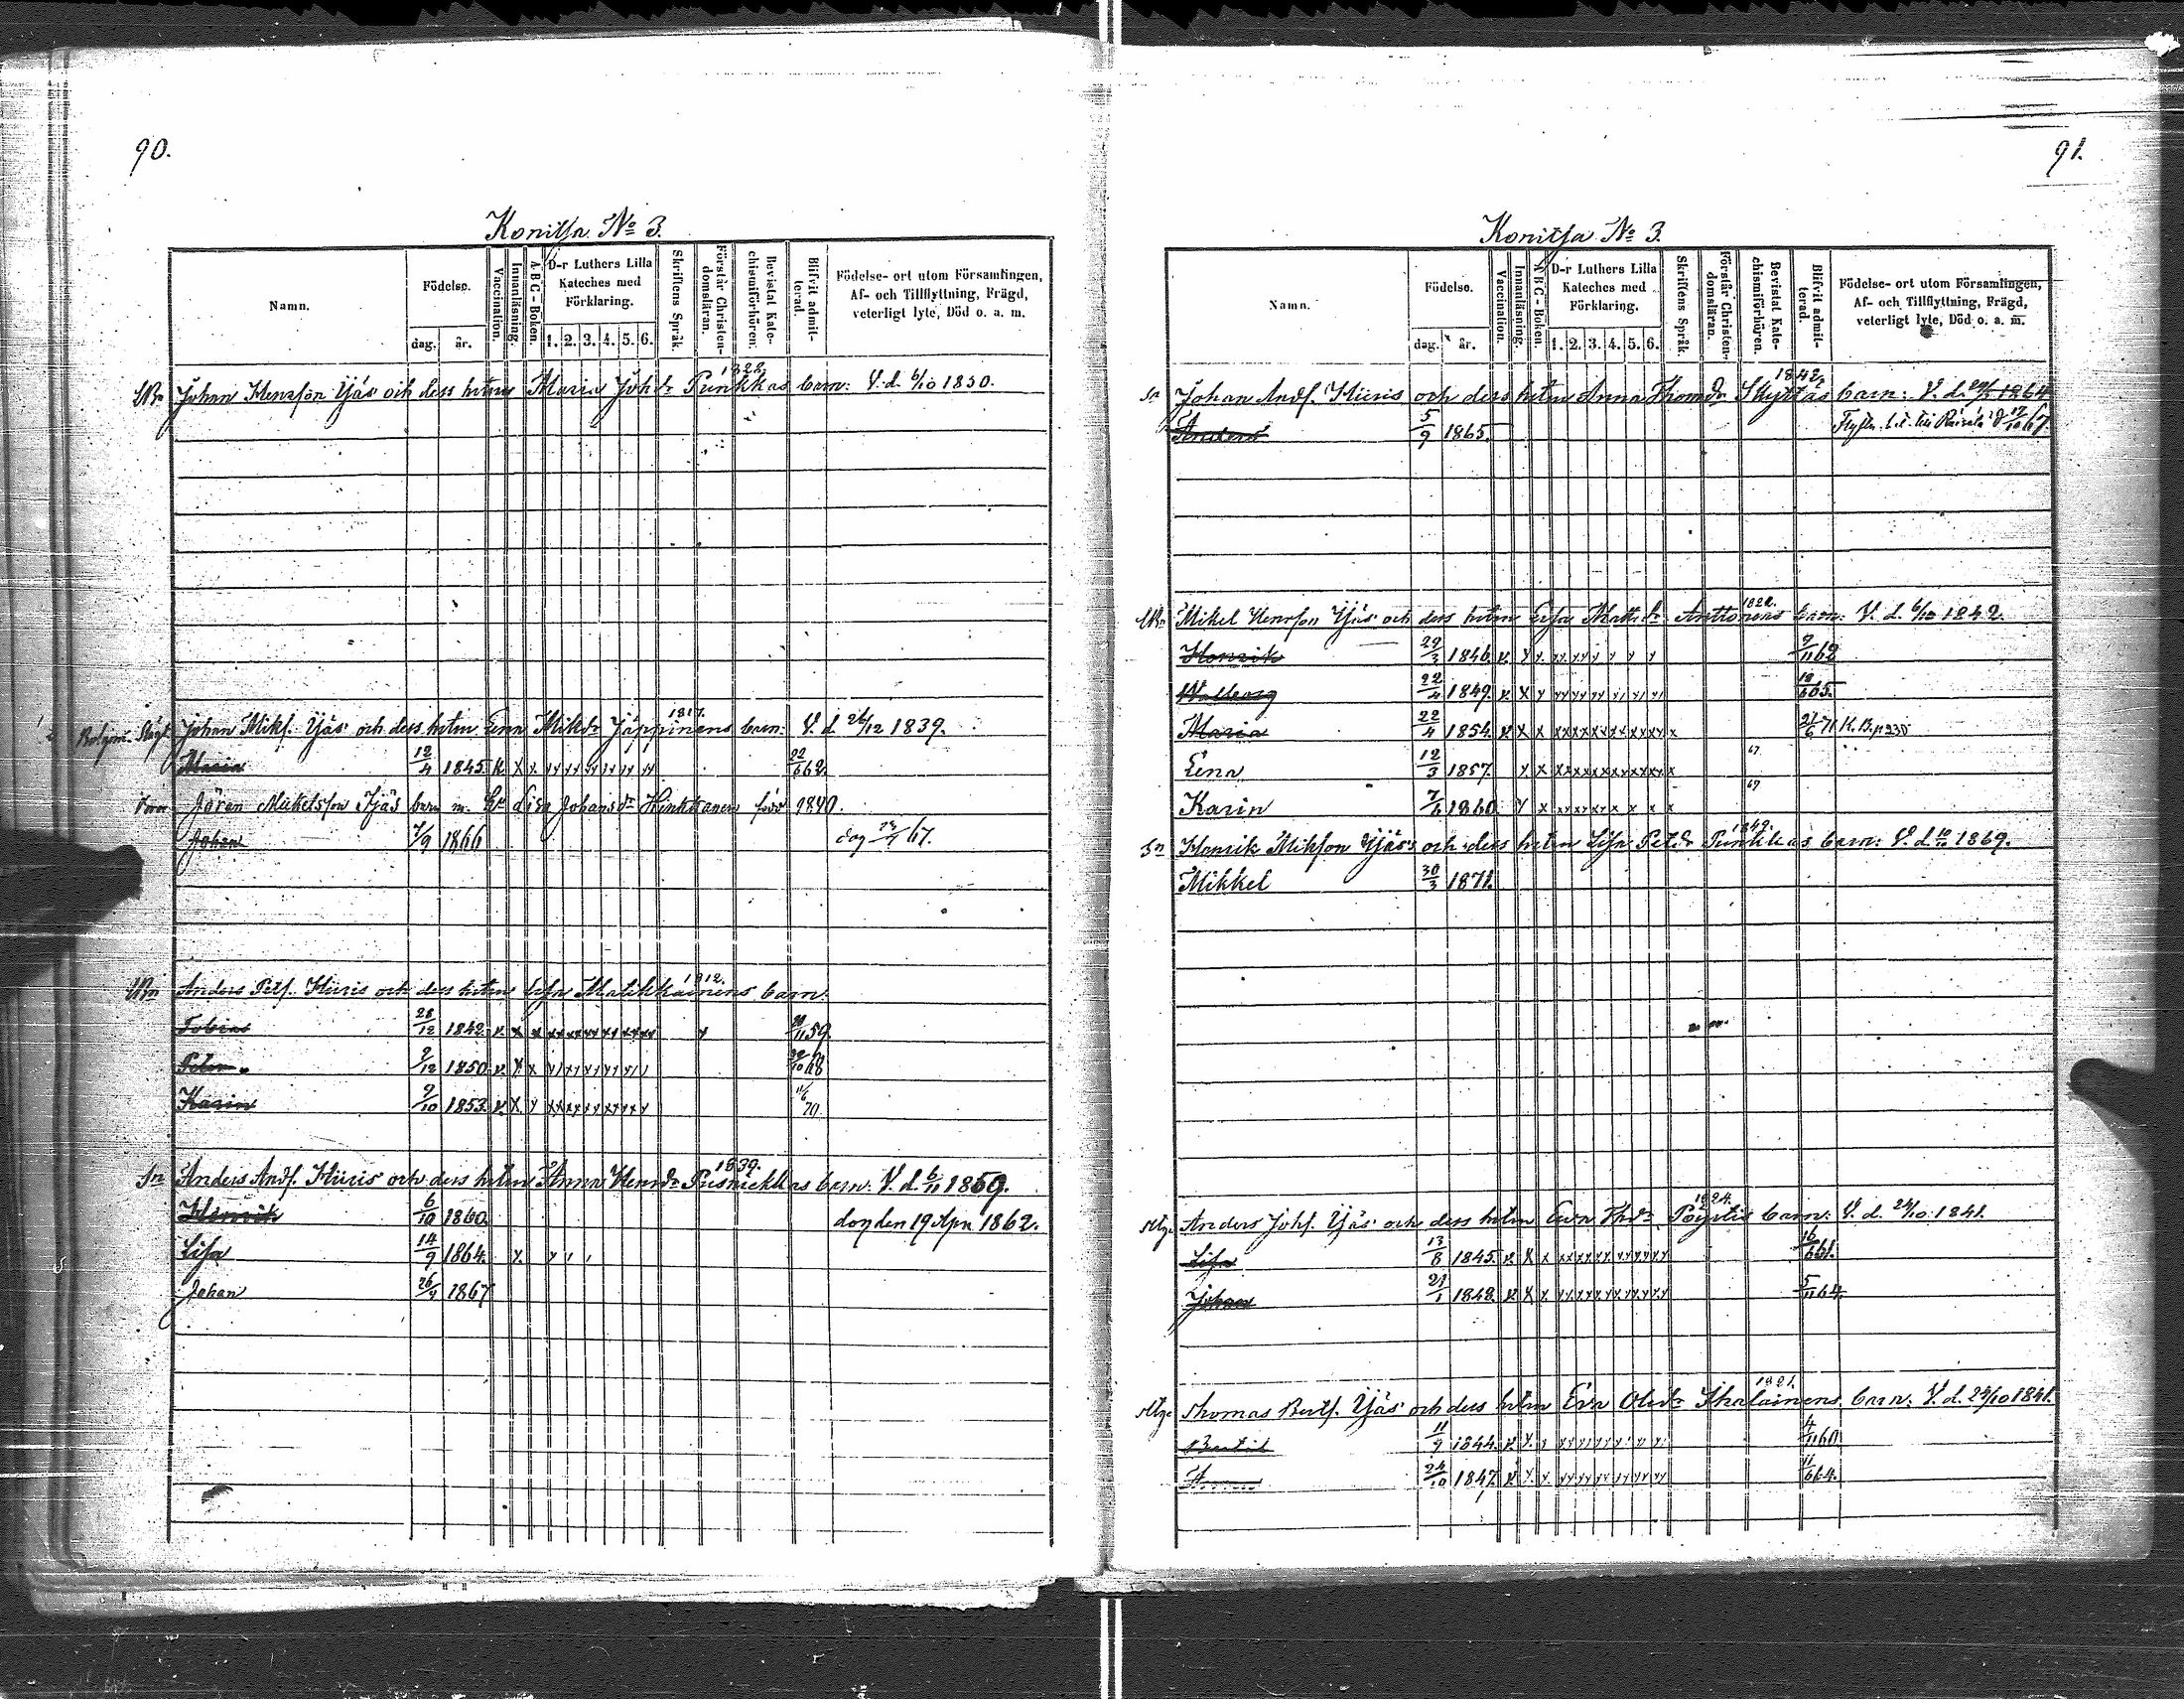 90.
Konitsa No 3.
Namn.
Födelse.
dag.
år.
Vaccination.
Innanläsning.
A-B-C-Boken.
D-r Luthers Lilla
Kateches med
Förklaring.
1. 2. 3. 4. 5. 6.
Skriftens Språk.
Förstår Christen-
domsläran.
Bevistat Kate-
chismiförhören.
Blifvit admit-
terad.
Födelse- ort utom Församlingen,
Af- och Tillflyttning, Frägd,
veterligt lyte, Död o. a. m.
Johan Henrsson Yjäs och dess hstru Maria Johdr Punkkas barn: V. d. 6/10 1850.
Johan Miks. Yjäs och dess hstru Enn Mikdr Jäppinens barn: V. d. 26/12 1839.
1817.
Maria 12/4 1845. 22/6 62.
Jöran Mickelsson Yjäs barn m. Lisa Johansdr Hinkkanen född 1840.
Johan 7/9 1866 67.
Anders Pets. Hiiris och dess hstru Lisa Matikkainens barn.
1812.
Tobias 28/12 1842. 59.
2/12 1850.
Karin 9/10 1853. 11/6 70.
Sn Anders Ands. Hiiris och dess hstru Anna Henrdr barn. V. d. 6/11 1859.
1839.
Henrik 6/10 1860. dog den 19 Apr. 1862.
Lisa 14/9 1864.
Johan 1867
91.
Konitsa No 3.
Namn.
Födelse.
dag.
år.
Vaccination.
Innanläsning.
A B C - Boken.
D-r Luthers Lilla
Kateches med
Förklaring.
1. 2. 3. 4. 5. 6.
Skriftens Språk.
Förstår Christen-
domsläran.
Bevistat Kate-
chismiförhören.
Blifvit admit-
terad.
Födelse- ort utom Församlingen,
Af- och Tillflyttning, Frägd,
veterligt lyte, Död o. a. m.
1842.
Sn Johan Ands. Hiiris och dess hstru Anna Thomdr Skyttas barn: V. d. 1864
Anders 5/9 1865. till Räisälä 67.
Mikel Henrsson Yjäs och dess hstru Lisa Mattsdr Anttonens barn: V. d. 6/12 1842.
Henrik 29/3 1846. 9/11 62
Walborg 22/4 1849. 65.
Maria 22/4 1854. 21/6 71 K. B. p 230
Lena 12/3 1857. 67
Karin 7/6 1860. 67
1849.
Sn Henrik Mikson Yjäs och dess hstru Lisa Petdr Punkkas barn: V. d. 1869.
Mikkel 30/3 1871.
1824.
Anders Johs. Yjäs och dess hstru Ewa Pöystis barn: V. d. 24/10 1841.
Lisa 13/8 1845. 16/6 61.
Johan 21/1 1848. 5/11 64.
1821.
Thomas Berts. Yjäs och dess hstru Eva Olofsdr Ikalainens barn: V. d. 24/10 1841.
Bertil 11/9 1844. 4/11 60
24/10 1847. 11/6 64.